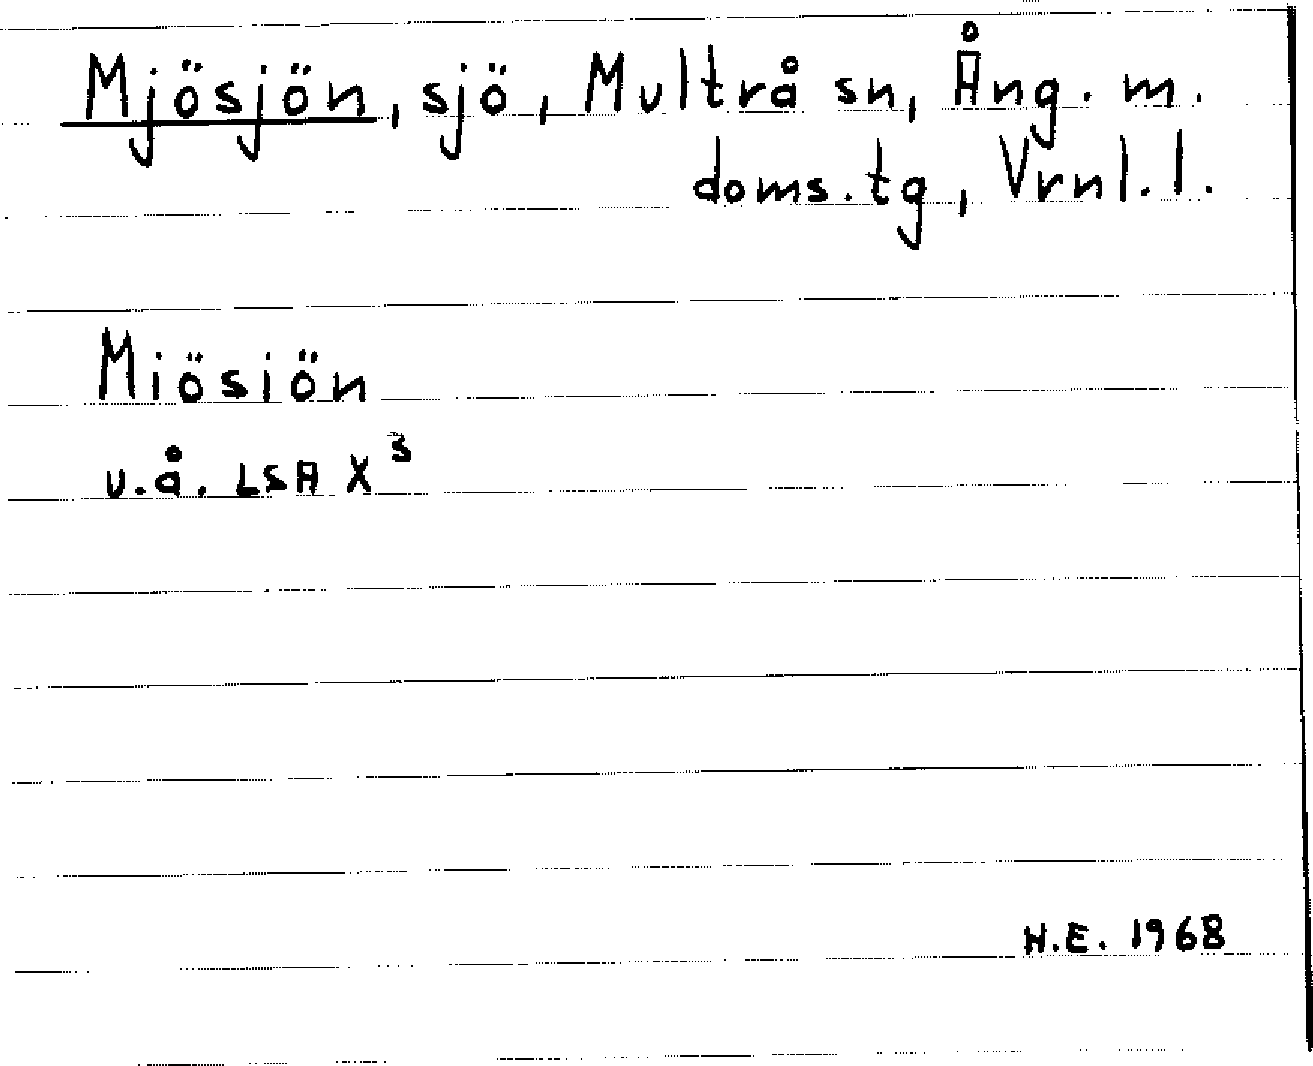 Mjösjön, sjö, Multrå sn, Ång. m.
doms.tg, Vrnl.l.
Miösiön
u.å. LSA X³
H.E. 1968